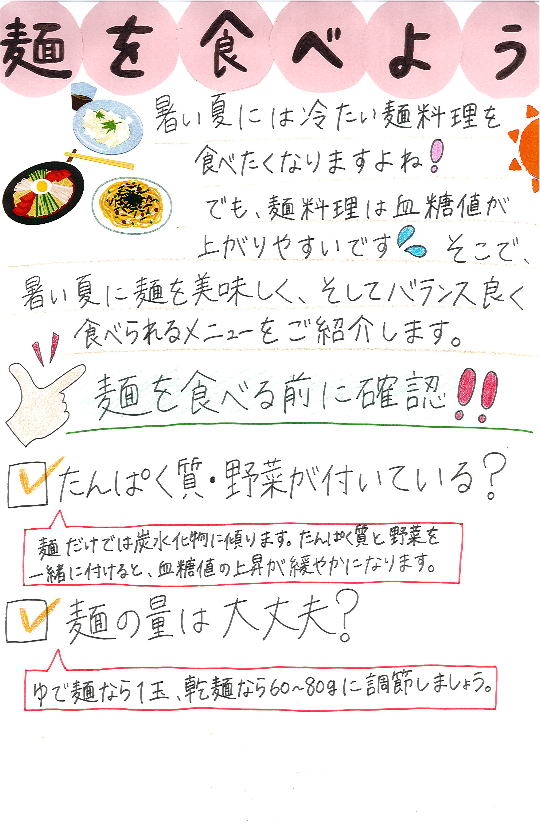 麺を食べよう
暑い夏には冷たい麺料理を
食べたくなりますよね！
でも、麺料理は血糖値が
上がりやすいです そこで、
暑い夏に麺を美味しく、そしてバランス良く
食べられるメニューをご紹介します。
麺を食べる前に確認!!
たんぱく質・野菜が付いている？
麺だけでは炭水化物に傾ります。たんぱく質と野菜を
一緒に付けると、血糖値の上昇が緩やかになります。
麺の量は大丈夫？
ゆで麺なら1玉、乾麺なら60～80gに調節しましょう。